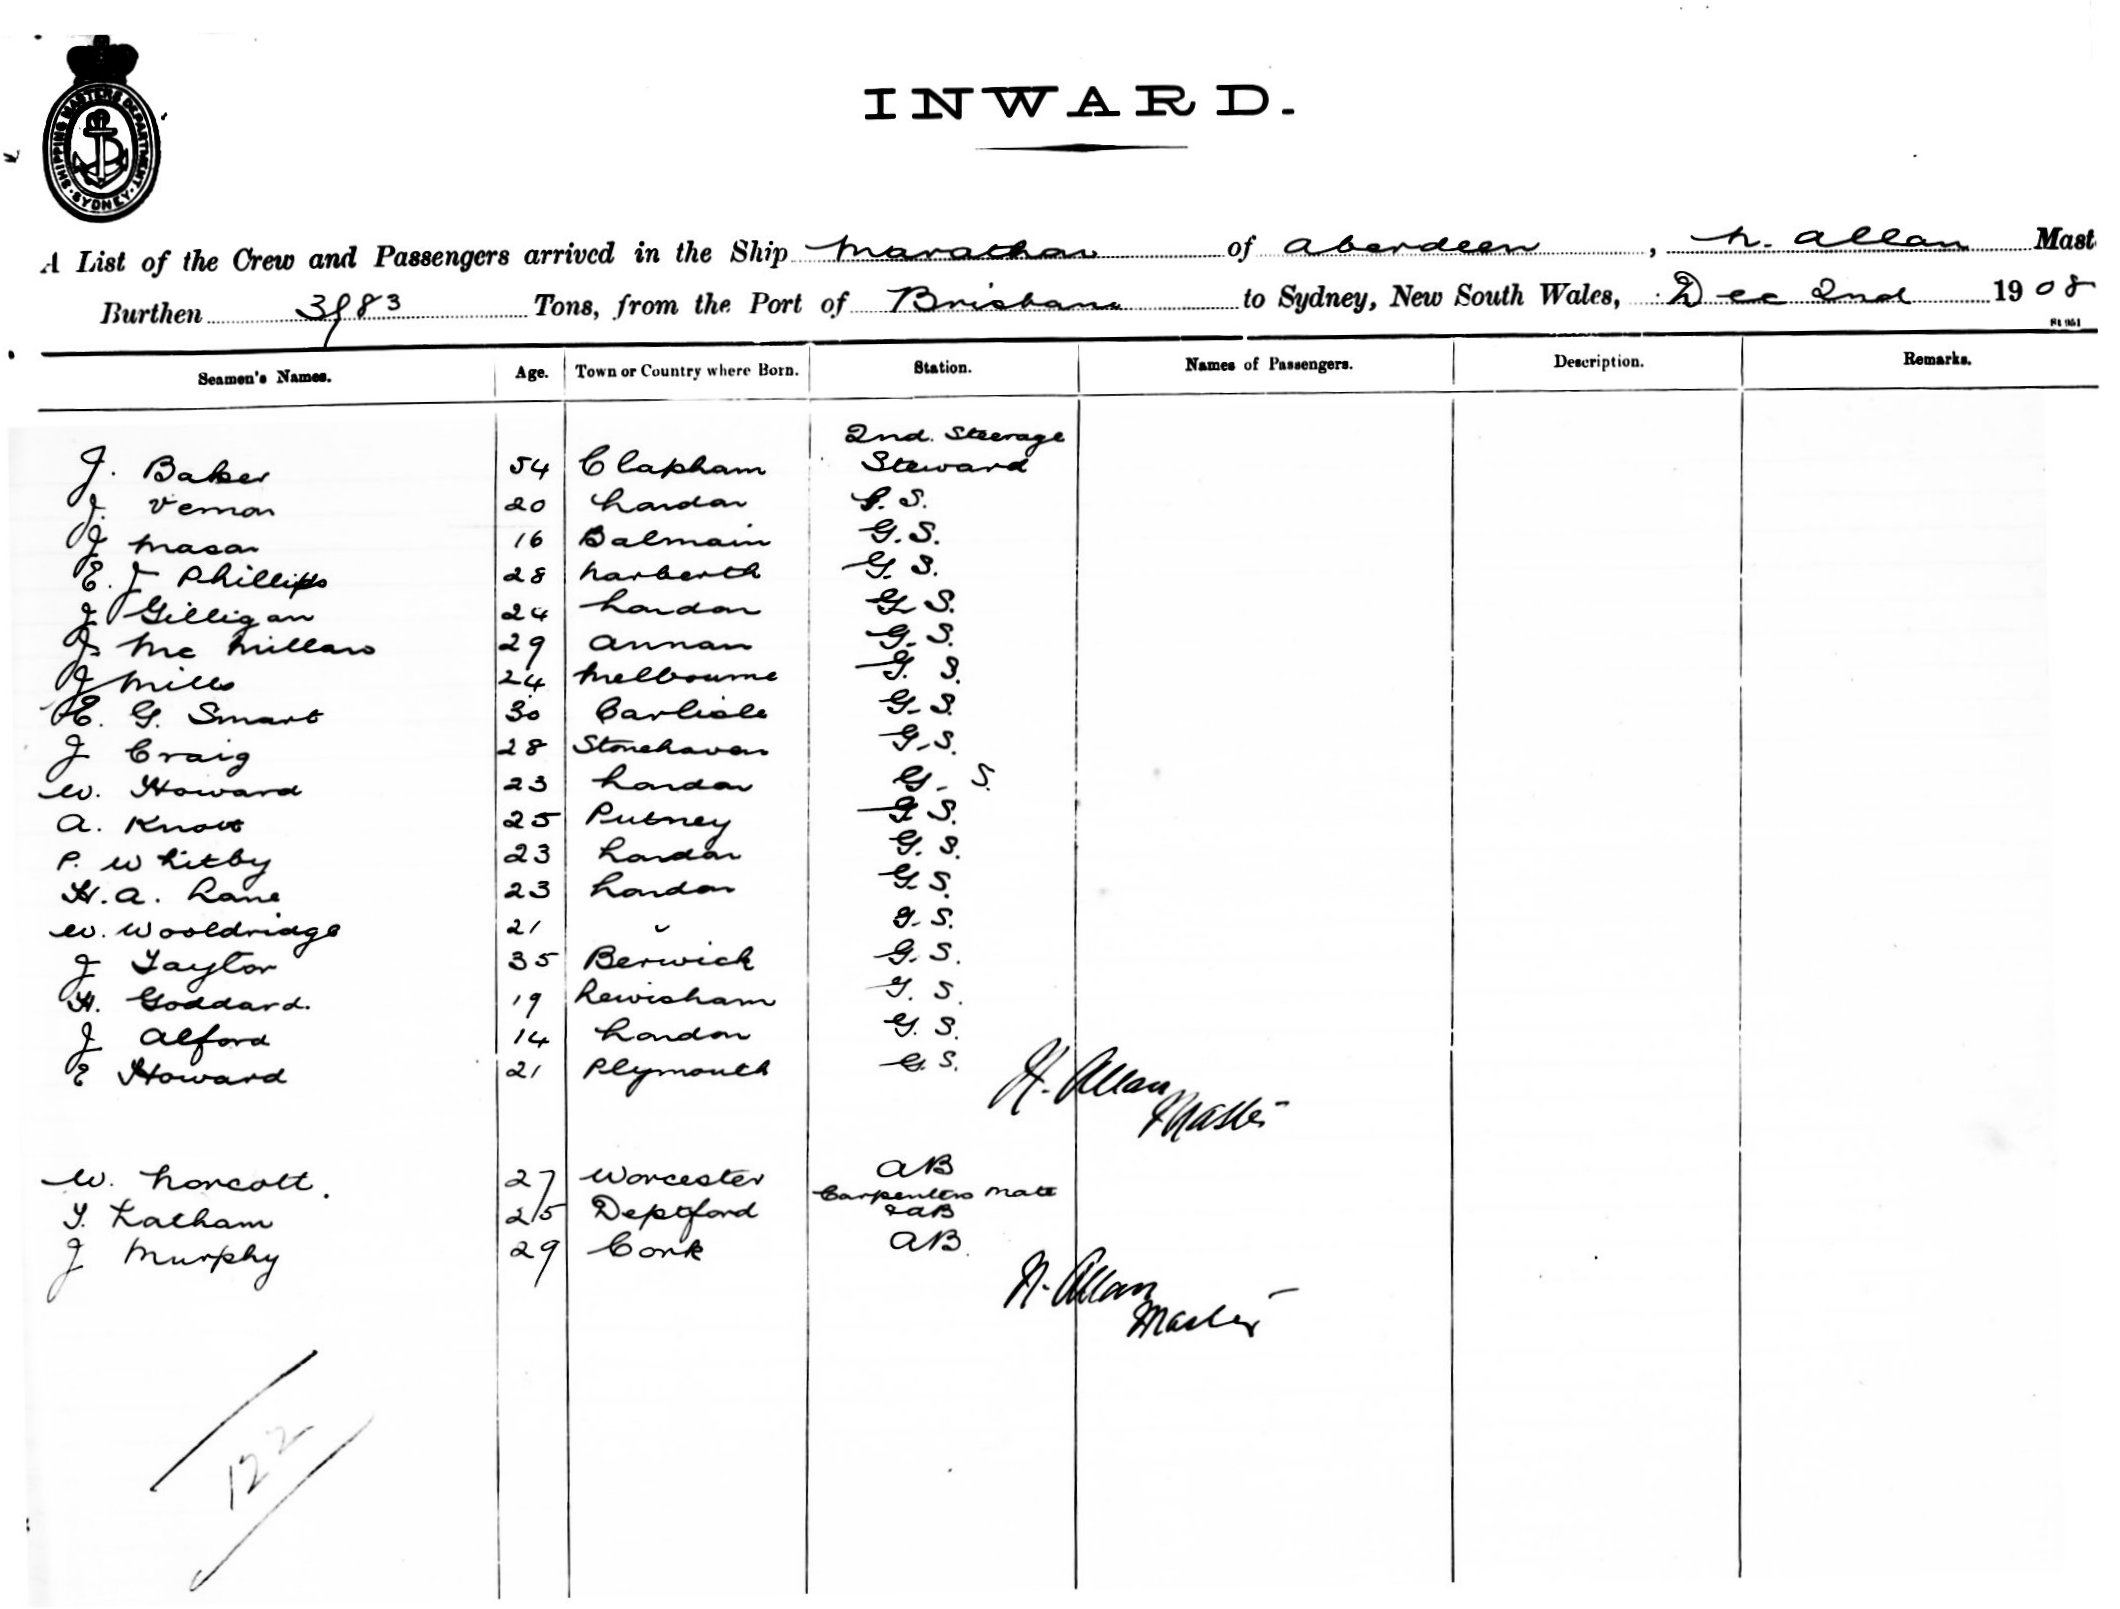 SHIPPING MASTERS DEPARTMENT · SYDNEY ·
INWARD.
A List of the Crew and Passengers arrived in the Ship Marathon of Aberdeen, N. Allan Mast
Burthen 3983 Tons, from the Port of Brisbane to Sydney, New South Wales, Dec 2nd 1908
Seamen's Names. Age. Town or Country where Born. Station. Names of Passengers. Description. Remarks.
2nd. Steerage
J. Baker 54 Clapham Steward
J. Vernon 20 London G. S.
J Mason 16 Balmain G. S.
E. J Phillips 28 Narberth G. S.
J Gilligan 24 London G. S.
J. Mc Millan 29 Annan G. S.
J Mills 24 Melbourne G. S.
E. G. Smart 30 Carlisle G. S.
J Craig 28 Stonehaven G. S.
W. Howard 23 London G. S.
A. Knott 25 Putney G. S.
P. Whitby 23 London G. S.
H. A. Lane 23 London G. S.
W. Wooldridge 21 " G. S.
J Taylor 35 Berwick G. S.
H. Goddard. 19 Lewisham G. S.
J Alford 14 London G. S.
E Howard 21 Plymouth G. S.
N. Allan
Master
W. Norcott. 27 Worcester AB
Carpenters Mate
T. Latham 25 Deptford & AB
J Murphy 29 Cork AB.
N. Allan
Master
122